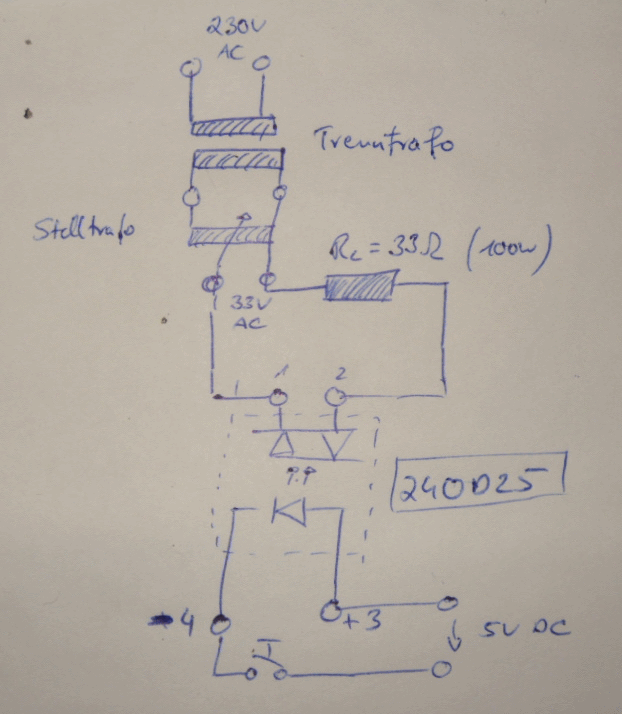 230V
AC
Trenntrafo
Stelltrafo
RL = 33Ω (100W)
33V
AC
1 2
240D25
-4
+3
5V DC
T